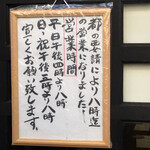 都の要請により八時迄
の営業になりました!
営業時間
平日午後四時より八時
日・祝午後三時より八時
宜しくお願い致します。